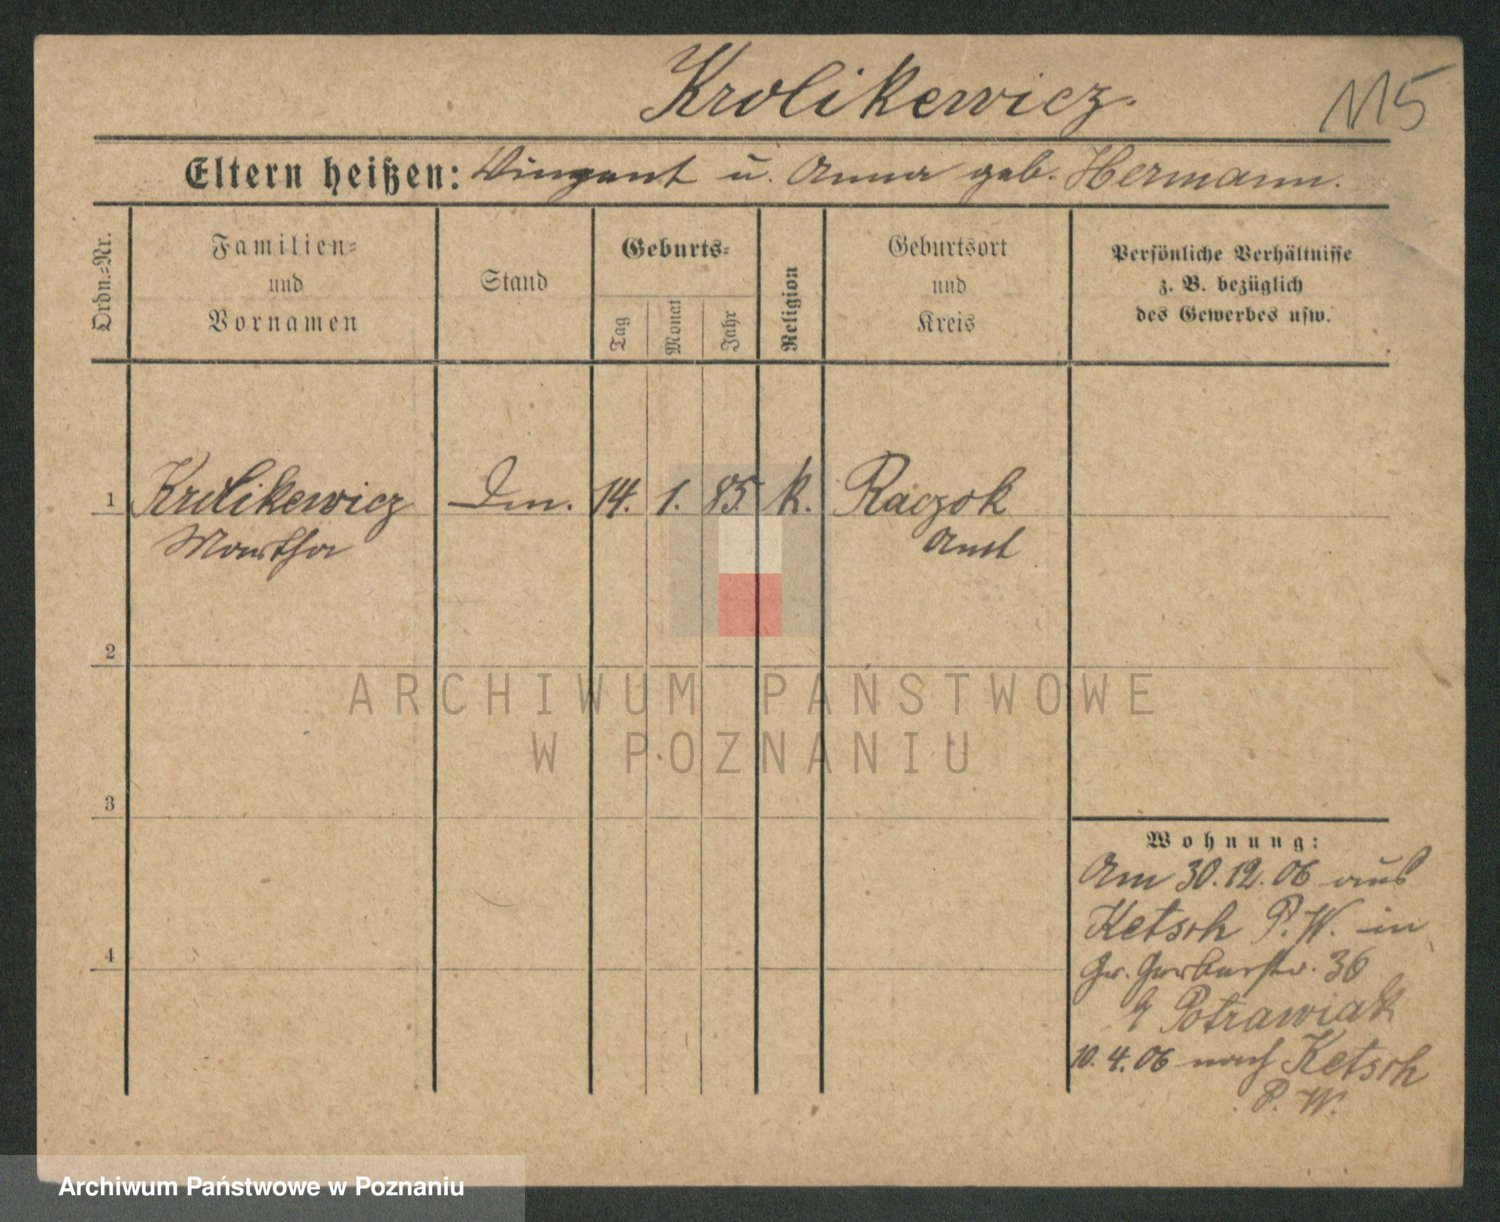 Krolikewicz.
115
Eltern heißen: Vinzent u. Anna geb. Hermann.
Ordn.=Nr.
Familien=
und
Vornamen
Stand
Geburts=
Tag
Monat
Jahr
Religion
Geburtsort
und
Kreis
Persönliche Verhältnisse
z. B. bezüglich
des Gewerbes usw.
1 Krolikewicz 14. 1. 85. k. Raczok
Martha
2
3
4
Wohnung:
Am 30.12.06 aus
Ketsch P. W. in
Gr. Gerberstr. 36
Potrawiak
10.4.06 nach Ketsch
P. W.
ARCHIWUM PAŃSTWOWE
W POZNANIU
Archiwum Państwowe w Poznaniu